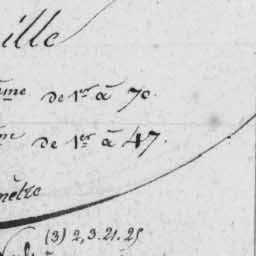 ille
me de 1er à 70.
me de 1er à 47.
mètre
(3) 2,3.21.25